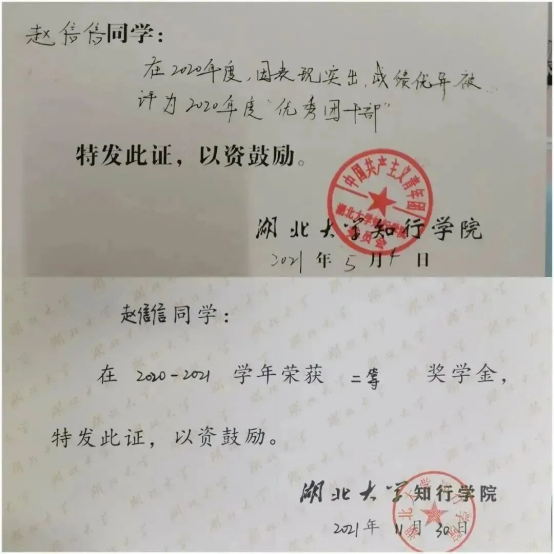 赵信信同学：
在2020年度，因表现突出，成绩优异被
评为2020年度“优秀团干部”
特发此证，以资鼓励。
中国共产主义青年团
湖北大学知行学院
委员会
湖北大学知行学院
2021年5月4日
赵信信同学：
在 2020-2021 学年荣获 二等 奖学金，
特发此证，以资鼓励。
湖北大学知行学院
湖北大学知行学院
2021年11月30日